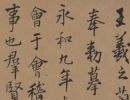 王羲之
奉勅摹
永和九年
會于會稽
事也羣賢